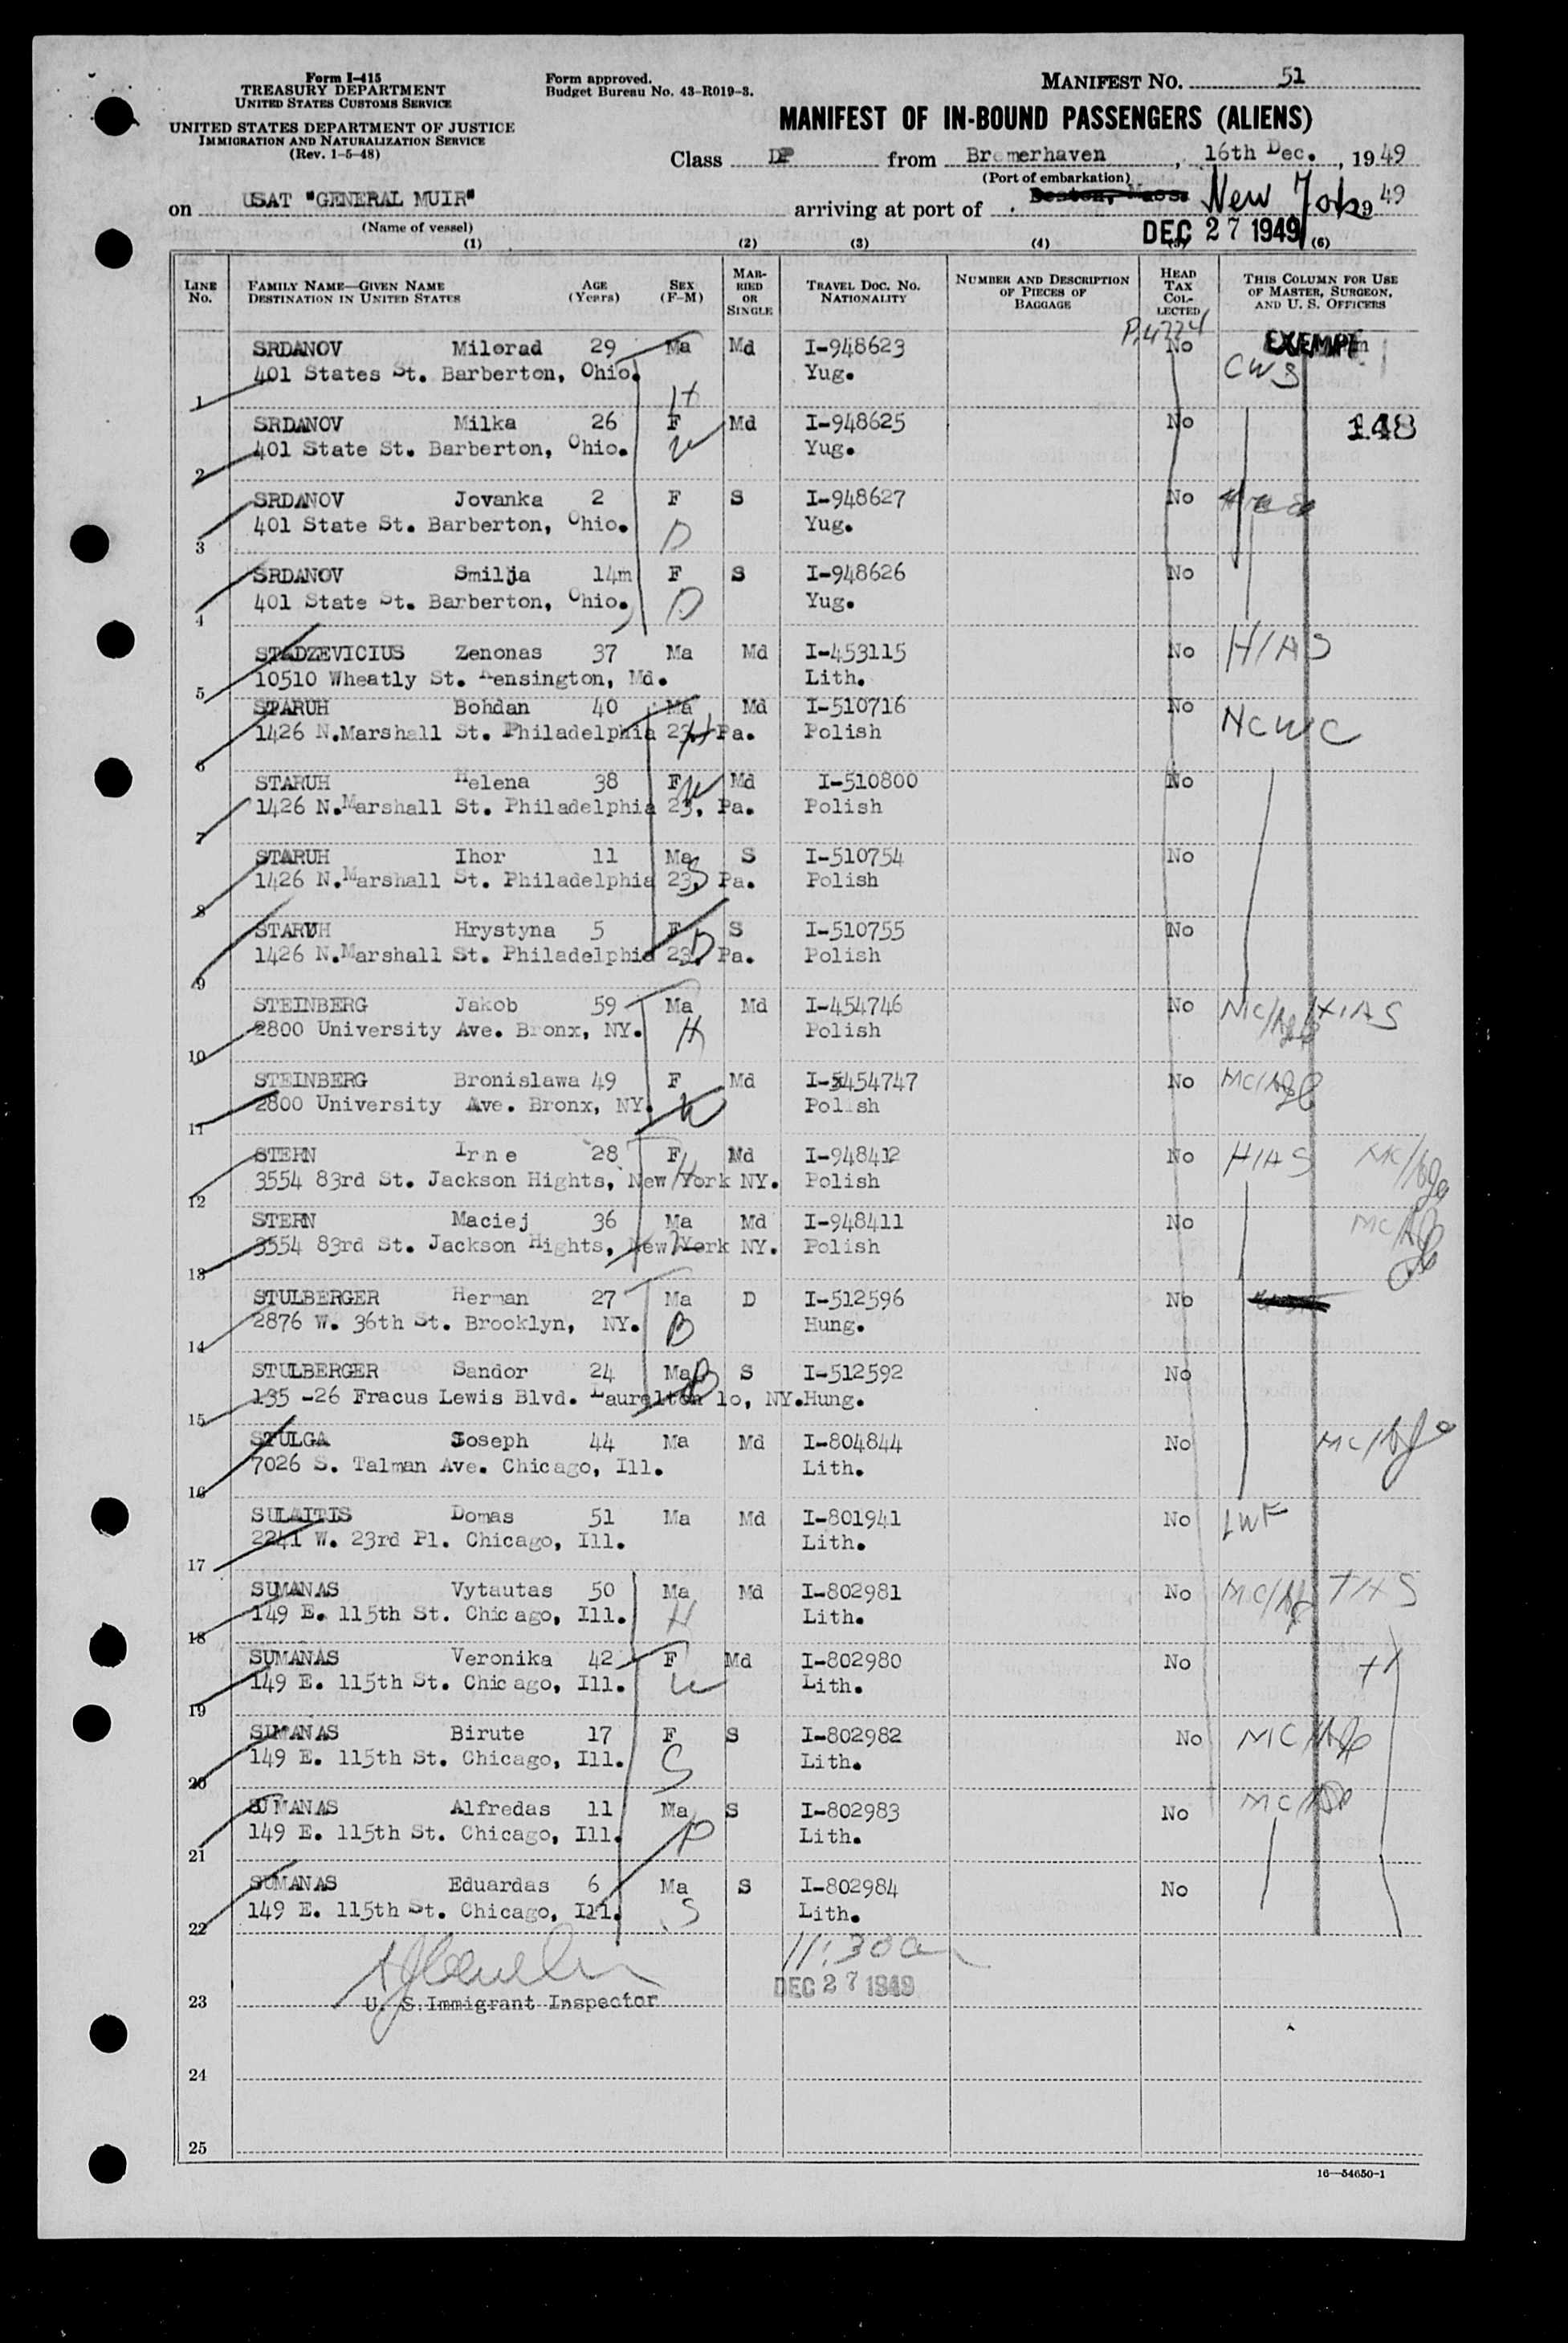 Form I-415
TREASURY DEPARTMENT
UNITED STATES CUSTOMS SERVICE
UNITED STATES DEPARTMENT OF JUSTICE
IMMIGRATION AND NATURALIZATION SERVICE
(Rev. 1-5-48)
Form approved.
Budget Bureau No. 43-R019-3.
MANIFEST NO. 51
MANIFEST OF IN-BOUND PASSENGERS (ALIENS)
Class DP from Bremerhaven, 16th Dec., 1949
(Port of embarkation)
on USAT "GENERAL MUIR" arriving at port of Boston, Mass. New York 1949
(Name of vessel)
DEC 27 1949
(1) (2) (3) (4) (5) (6)
LINE No. FAMILY NAME—GIVEN NAME DESTINATION IN UNITED STATES AGE (Years) SEX (F-M) MARRIED OR SINGLE TRAVEL DOC. NO. NATIONALITY NUMBER AND DESCRIPTION OF PIECES OF BAGGAGE HEAD TAX COLLECTED THIS COLUMN FOR USE OF MASTER, SURGEON, AND U. S. OFFICERS
SRDANOV Milorad 29 Ma Md I-948623 No EXEMPT
401 States St. Barberton, Ohio. Yug. CWS
1 H
SRDANOV Milka 26 F Md I-948625 No 148
401 State St. Barberton, Ohio. W Yug.
2
SRDANOV Jovanka 2 F S I-948627 No
401 State St. Barberton, Ohio. D Yug.
3
SRDANOV Smilja 14m F S I-948626 No
401 State St. Barberton, Ohio. D Yug.
4
STADZEVICIUS Zenonas 37 Ma Md I-453115 No HIAS
10510 Wheatly St. Kensington, Md. Lith.
5
STARUH Bohdan 40 Ma Md I-510716 No NCWC
1426 N.Marshall St. Philadelphia 23, Pa. H Polish
6
STARUH Helena 38 F W Md I-510800 No
1426 N.Marshall St. Philadelphia 23, Pa. Polish
7
STARUH Ihor 11 Ma S I-510754 No
1426 N.Marshall St. Philadelphia 23, Pa. S Polish
8
STARUH Hrystyna 5 F S I-510755 No
1426 N.Marshall St. Philadelphia 23, Pa. D Polish
9
STEINBERG Jakob 59 Ma Md I-454746 No HIAS
2800 University Ave. Bronx, NY. H Polish
10
STEINBERG Bronislawa 49 F Md I-454747 No
2800 University Ave. Bronx, NY. W Polish
11
STERN Irne 28 F Md I-948412 No HIAS
3554 83rd St. Jackson Hights, New York NY. Polish
12
STERN Maciej 36 Ma Md I-948411 No
3554 83rd St. Jackson Hights, New York NY. Polish
13
STULBERGER Herman 27 Ma D I-512596 No
2876 W. 36th St. Brooklyn, NY. B Hung.
14
STULBERGER Sandor 24 Ma B S I-512592 No
135 -26 Fracus Lewis Blvd. Laurelton lo, NY. Hung.
15
STULGA Joseph 44 Ma Md I-804844 No
7026 S. Talman Ave. Chicago, Ill. Lith.
16
SULAITIS Domas 51 Ma Md I-801941 No LWF
2241 W. 23rd Pl. Chicago, Ill. Lith.
17
SUMANAS Vytautas 50 Ma Md I-802981 No
149 E. 115th St. Chicago, Ill. H Lith.
18
SUMANAS Veronika 42 F Md I-802980 No
149 E. 115th St. Chicago, Ill. W Lith.
19
SUMANAS Birute 17 F S I-802982 No
149 E. 115th St. Chicago, Ill. Lith.
20
SUMANAS Alfredas 11 Ma S I-802983 No
149 E. 115th St. Chicago, Ill. Lith.
21
SUMANAS Eduardas 6 Ma S I-802984 No
149 E. 115th St. Chicago, Ill. S Lith.
22
11:30a
DEC 27 1949
23 U. S. Immigrant Inspector
24
25
16—54650-1